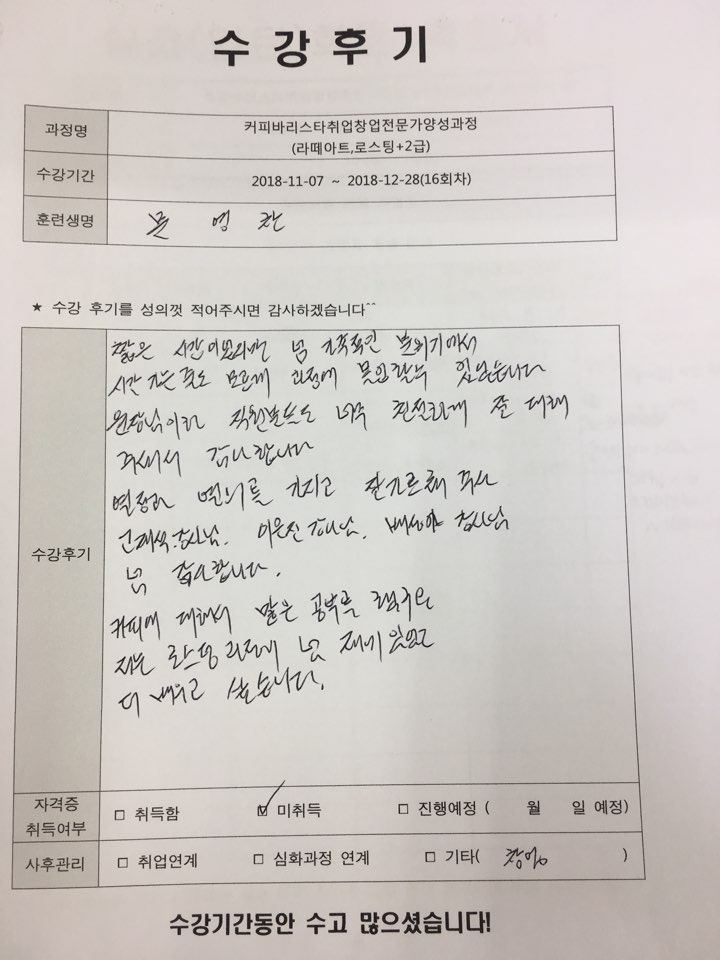 수강후기
과정명
커피바리스타취업창업전문가양성과정
(라떼아트,로스팅+2급)
수강기간
2018-11-07 ~ 2018-12-28(16회차)
훈련생명
문 영 찬
★ 수강 후기를 성의껏 적어주시면 감사하겠습니다^^
수강후기
짧은 시간이었지만 넘 가족적인 분위기에서
시간 가는 줄도 모르게 과정에 몰입할수 있었습니다
원장님이하 직원분들도 너무 친절하게 잘 대해
주셔서 감사합니다
열정과 열의를 가지고 잘가르쳐 주신
강사님. 이은진 강사님. 강사님
넘 감사합니다.
커피에 대해서 많은 공부를 했구요
저는 로스팅 과정이 넘 재미있었고
더 배우고 싶습니다.
자격증
취득여부
□ 취득함
☑ 미취득
□ 진행예정 ( 월 일 예정)
사후관리
□ 취업연계
□ 심화과정 연계
□ 기타( 창업 )
수강기간동안 수고 많으셨습니다!